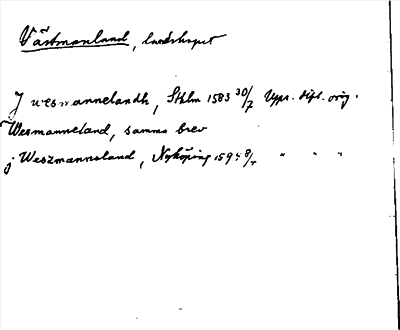 Västmanland, landskapet
J wesmannelandh, Sthlm 1583 30/7 Upps. dipl. orig.
Wesmanneland, samma brev
j Weszmannaland, Nyköping 1594 8/7 " " "